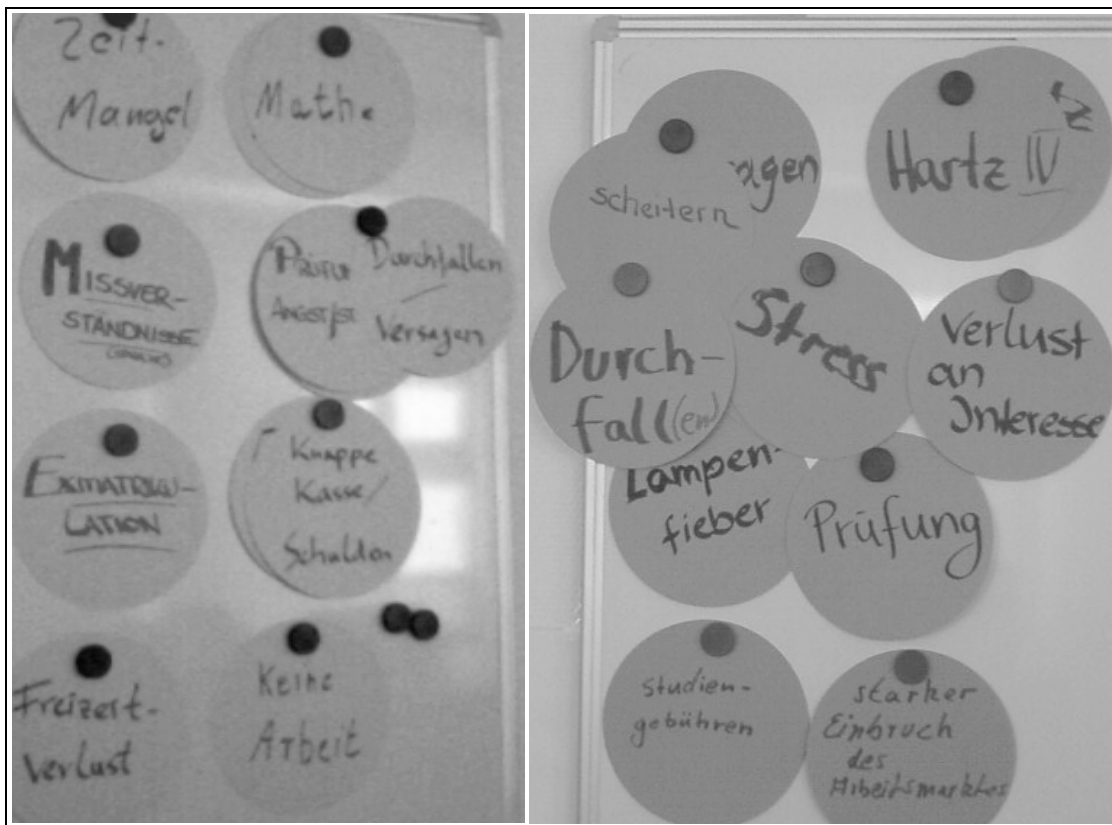 Zeit-
Mangel
Mathe
MISSVER-
STÄNDNISSE
PRÜFU
ANGST/ST
Durchfallen
/
Versagen
EXMATRIKU-
LATION
Knappe
Kasse/
Schulden
Freizeit-
verlust
Keine
Arbeit
agen
scheitern
Hartz IV
Durch-
fall(en)
Stress
Verlust
an
Interesse
Lampen-
fieber
Prüfung
Studien-
gebühren
starker
Einbruch
des
Arbeitsmarktes